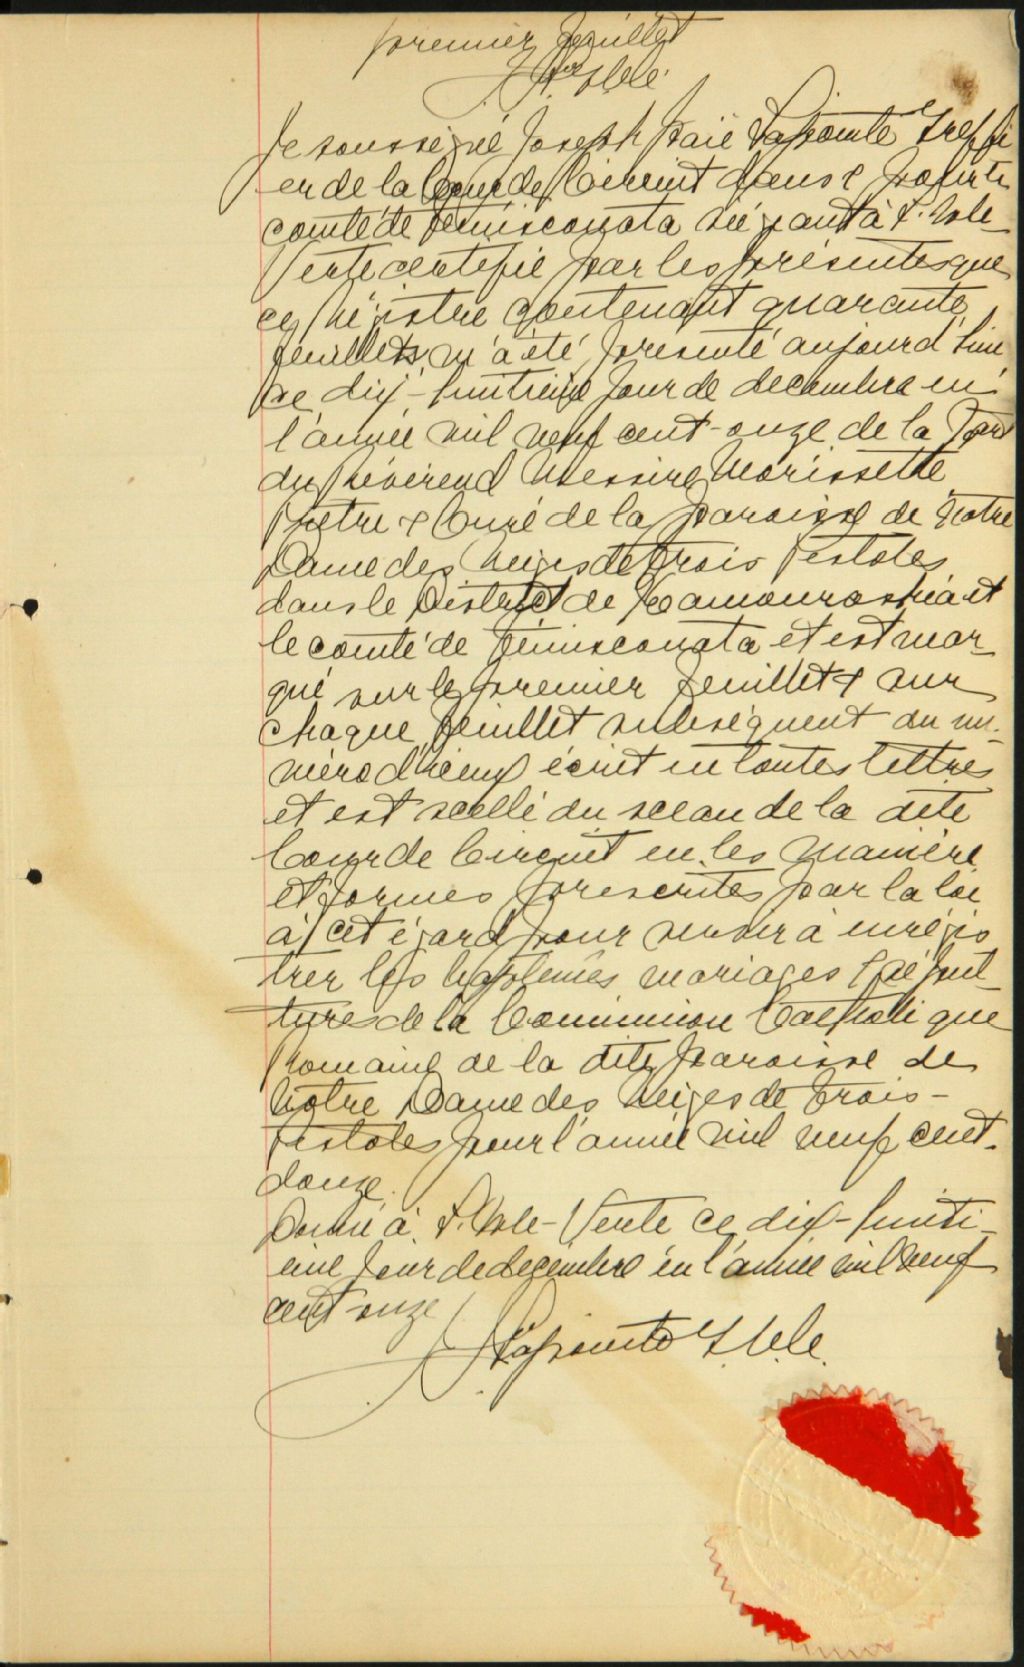 premier feuillet
Je soussigné Joseph Lapointe Greffi
er de la Cour de Circuit dans & pour le
comté de Témiscouata siégeant à l'Isle
Verte certifie par les présentes que
ce régistre contenant quarante
feuillets m'a été présenté aujourd'hui
ce dix-huitième jour de decembre en
l'année mil neuf cent-onze de la part
du Révérend Messire Morissette
Prêtre & Curé de la paroisse de Notre
Dame des Neiges de Trois Pistoles
dans le District de Kamouraska et
le comté de Témiscouata et est mar
qué sur le premier feuillet & sur
chaque feuillet subséquent du nu-
méro d'iceux écrit en toutes lettres
et est scellé du sceau de la dite
Cour de Circuit en les manière
et formes prescrites par la loi
à cet égard pour servir à enrégis
trer les baptêmes mariages & sépul-
tures de la Communion Catholique
Romaine de la dite paroisse de
Notre Dame des Neiges de Trois-
Pistoles pour l'année mil neuf cent-
douze.
Donné à l'Isle-Verte ce dix-huiti-
ème jour de decembre en l'année mil neuf
cent onze
Lapointe